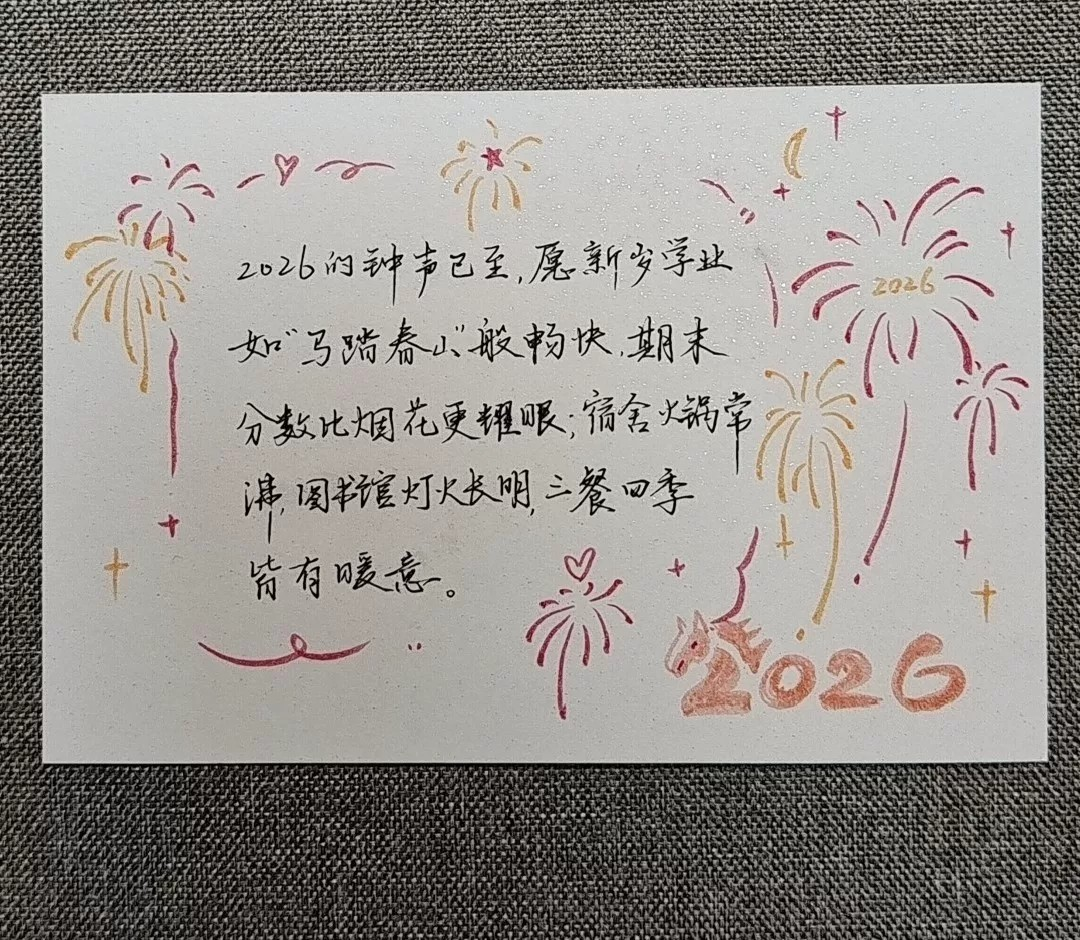 2026
2026的钟声已至,愿新岁学业
如“马踏春山”般畅快,期末
分数比烟花更耀眼;宿舍火锅常
沸,图书馆灯火长明,三餐四季
皆有暖意。
2026